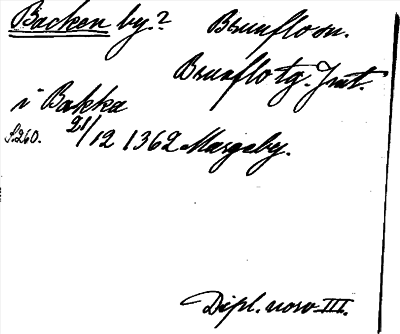 Backen by? Brunflo sn.
Brunflo tg. Jmt.
i Bakka
S.260. 21/12 1362 Margaby.
Dipl. norv. III.